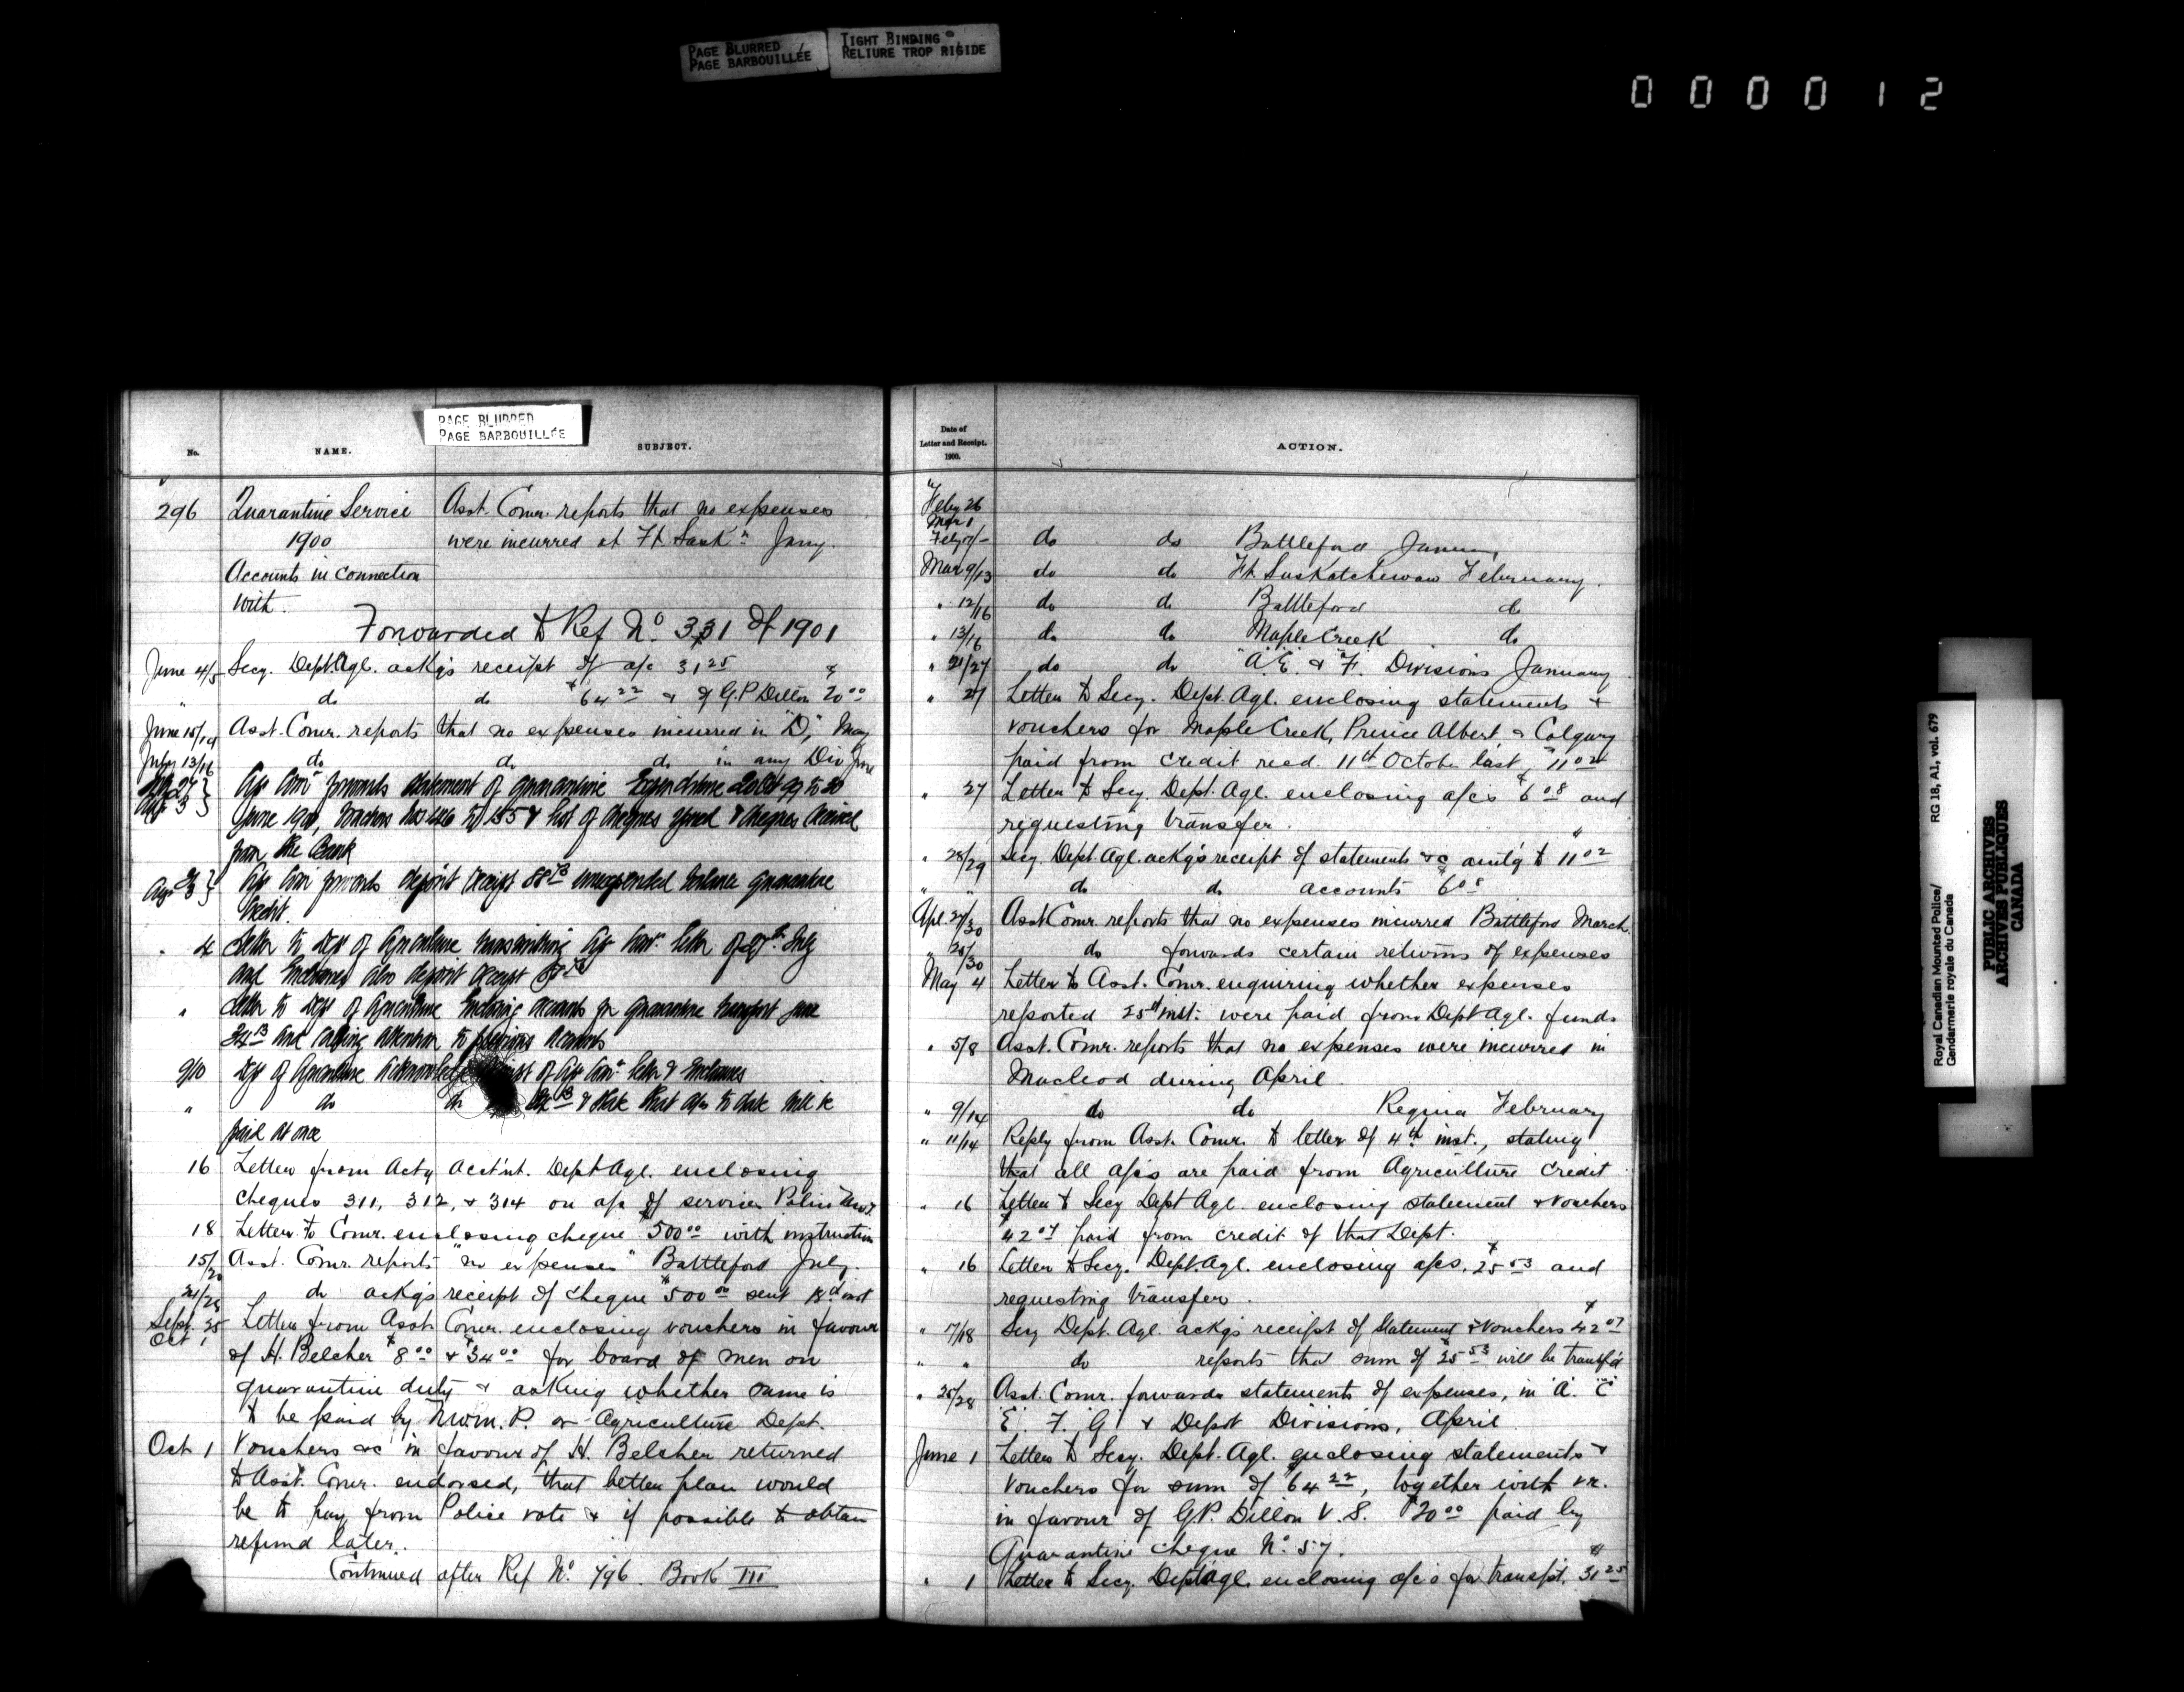 PAGE BLURRED
PAGE BARBOUILLÉE
TIGHT BINDING
RELIURE TROP RIGIDE
000012
PAGE BLURRED
PAGE BARBOUILLÉE
No. NAME. SUBJECT.
296 Quarantine Service Asst. Comr. reports that no expenses
1900 were incurred at Ft Saskn Jany.
Accounts in connection
with.
Forwarded to Ref No. 331 of 1901
June 4/5 Secy. Dept. Agl. ackg's receipt of a/c 31 25 &
" do do $64 22 & of G.P. Dillon 20 00
June 15/19 Asst. Comr. reports that no expenses incurred in "D", May
July 13/16 do do do in any Div June
Aug 3 statement of quarantine Expenditure to 30
June 1900, to 155 & list of cheques & cheques
from the Bank
Aug 3 forwards deposit receipt unexpended balance quarantine
Credit.
" 4 Letter to Dept of Agriculture transmitting letter of 27th July
and Enclosures also deposit receipt
" Letter to Dept of Agriculture Enclosing accounts for quarantine transport June
and calling attention to previous accounts
9/10 Dept of Agriculture of letter & Enclosures
" do do & state that a/cs to date will be
paid at once
16 Letter from Actg Acct'nt. Dept Agl. enclosing
cheques 311, 312, & 314 on a/c of services Police
18 Letter to Comr. enclosing cheque $500 00 with instruction
15/20 Asst. Comr. reports "no expenses" Battleford July.
21/25 do ackg's receipt of cheque $500 00 sent 18th inst
Sept. 25
Oct 1 Letter from Asst. Comr. enclosing vouchers in favour
of H. Belcher $8 00 & $34 00 for board of men on
quarantine duty & asking whether same is
to be paid by N.W.M.P. or Agriculture Dept.
Oct 1 Vouchers &c in favour of H. Belcher returned
to Asst. Comr. endorsed, that better plan would
be to pay from Police vote & if possible to obtain
refund later.
Continued after Ref No. 796. Book III
Date of
Letter and Receipt.
1900.
ACTION.
Feby 26
Mar 1
Feby do do Battleford
Mar 9/13 do do Ft. Saskatchewan February.
" 12/16 do do Battleford do
" 13/16 do do Maple Creek do
" 21/27 do do "A" "E" & "F" Divisions January
" 27 Letter to Secy. Dept. Agl. enclosing statements &
vouchers for Maple Creek, Prince Albert & Calgary
paid from credit recd. 11th October last, $11 02
" 27 Letter to Secy. Dept. Agl. enclosing a/cs $6 08 and
requesting transfer.
" 28/29 Secy. Dept. Agl. ackg's receipt of statements &c amt'g to $11 02
" " do do accounts $6 08
Apl. 27/30 Asst Comr. reports that no expenses incurred Battleford March.
" 25/30 do forwards certain returns of expenses
May 4 Letter to Asst. Comr. enquiring whether expenses
reported 25th inst. were paid from Dept Agl. funds
" 5/8 Asst. Comr. reports that no expenses were incurred in
Macleod during April
" 9/14 do do Regina February
" 11/14 Reply from Asst. Comr. to letter of 4th inst., stating
that all a/cs are paid from Agriculture credit
" 16 Letter to Secy Dept Agl. enclosing statement & vouchers
$42 07 paid from credit of that Dept.
" 16 Letter to Secy. Dept. Agl. enclosing a/cs. $25 53 and
requesting transfer.
" 17/18 Secy Dept. Agl. ackg's receipt of Statement & vouchers $42 07
" " do reports that sum of $25 53 will be transf'd
" 25/28 Asst. Comr. forwards statements of expenses, in "A" "C"
"E" "F" "G" & Depot Divisions, April
June 1 Letter to Secy. Dept. Agl. enclosing statements &
vouchers for sum of $64 22, together with vr.
in favour of G.P. Dillon V.S. $20 00 paid by
Quarantine cheque No. 57.
" 1 Letter to Secy. Dept Agl. enclosing a/cs for transp't. $31 25
Royal Canadian Mounted Police/ RG 18, A1, vol. 679
Gendarmerie royale du Canada
PUBLIC ARCHIVES
ARCHIVES PUBLIQUES
CANADA